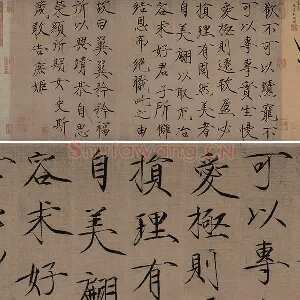 歡不可以黷寵不
可以專專實生慢
愛極則遷致盈必
損理有固然美者
自美翩以取尤冶
容求好君子所讎
結恩而絕職此之由
故曰翼翼矜矜福
所以興靖恭自思
榮顯所期女史斯
箴敢告庶姬
可以專
愛極則
損理有
自美翩
容求好